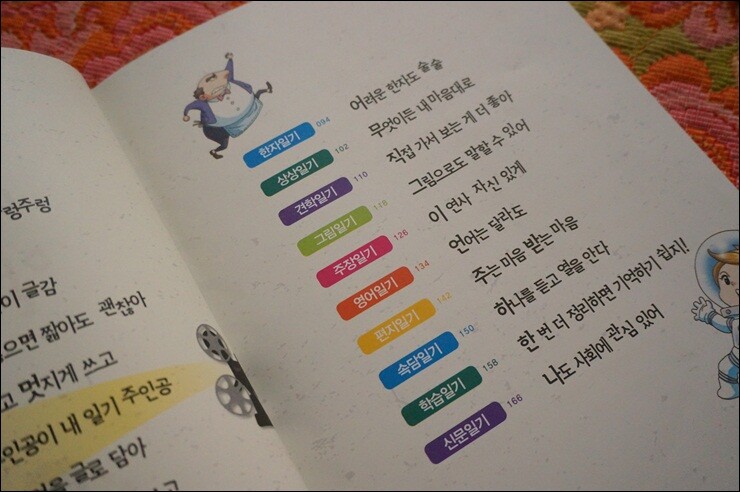 렁주렁
이 글감
으면 짧아도 괜찮아
고 멋지게 쓰고
인공이 내 일기 주인공
을 글로 담아
한자일기 094 어려운 한자도 술술
상상일기 102 무엇이든 내 마음대로
견학일기 110 직접 가서 보는 게 더 좋아
그림일기 118 그림으로도 말할 수 있어
주장일기 126 이 연사 자신 있게
영어일기 134 언어는 달라도
편지일기 142 주는 마음 받는 마음
속담일기 150 하나를 듣고 열을 안다
학습일기 158 한 번 더 정리하면 기억하기 쉽지!
신문일기 166 나도 사회에 관심 있어